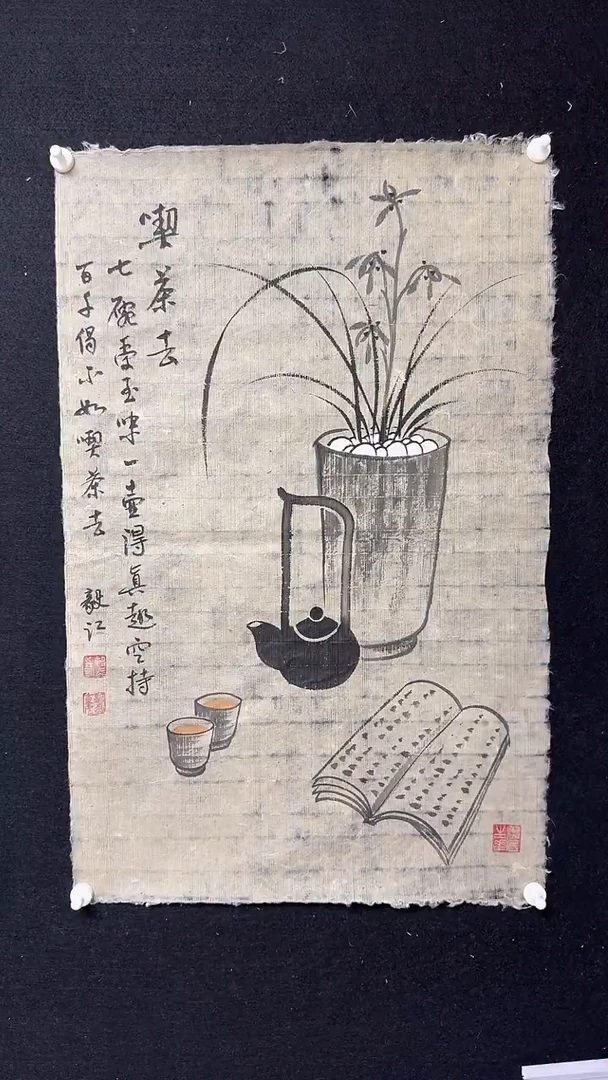 喫茶去
七碗受至味一壺得真趣空持
百千偈不如喫茶去
毅江